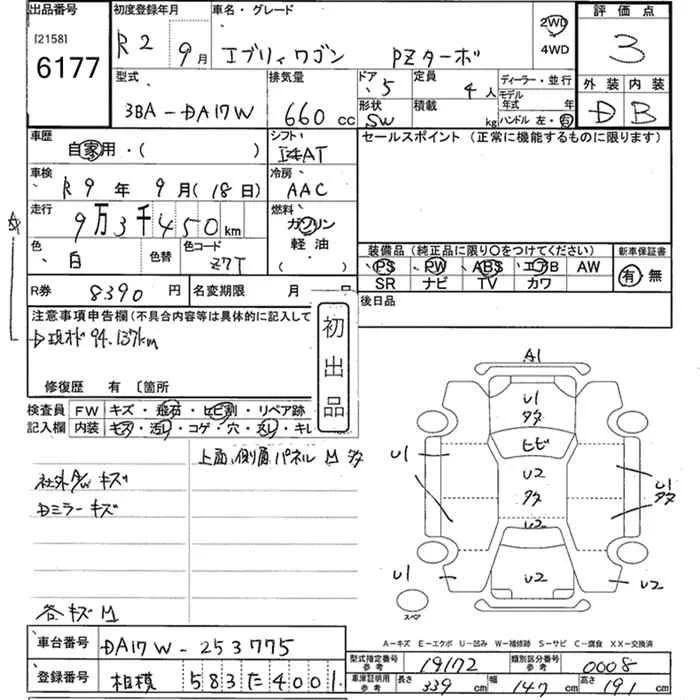 出品番号
[2158]
6177
初度登録年月
R2 9月
車名・グレード
エブリィワゴン PZターボ
2WD
4WD
評価点
3
外装 内装
D B
型式
3BA-DA17W
排気量
660 cc
ドア 5
形状 SW
定員 4人
積載 kg
ディーラー・並行
モデル
年式 年
ハンドル 左・右
車歴
自家用・( )
シフト
AT
セールスポイント (正常に機能するものに限ります)
車検
R9年 9月(18日)
冷房
AAC
走行
9万3千450km
燃料
ガソリン
軽油
( )
色
白
色替
色コード
Z7T
装備品 (純正品に限り○をつけてください)
新車保証書
PS PW ABS エアB AW
有・無
SR ナビ TV カワ
R券 8390円
名変期限 月 日
後日品
注意事項申告欄(不具合内容等は具体的に記入して
D現オド 94,137km
初出品
修復歴 有 〔箇所
検査員 FW キズ・飛石・ヒビ割・リペア跡
記入欄 内装 キズ・汚レ・コゲ・穴・スレ・キレ
上面、側面パネル M タタ
社外A/W キズ
Dミラー キズ
各キズM
A1
U1
タタ
ヒビ
U1
U2
タタ
U1
タタ
U2
U1
U2
U2
スペア
A-キズ E-エクボ U-凹み W-補修跡 S-サビ C-腐食 XX-交換済
車台番号 DA17W-253775
型式指定番号
参考
19172
類別区分番号
参考
0008
登録番号 相模 583 た 4001
車庫証明用
参考
長さ 339cm 幅 147cm 高さ 191cm